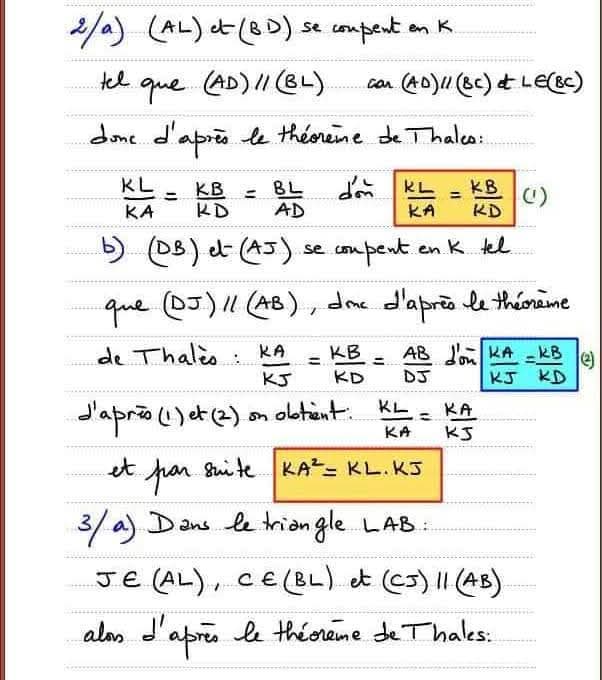 2/a) (AL) et (BD) se coupent en K
tel que (AD) // (BL) car (AD) // (BC) et L∈(BC)
donc d'après le théorème de Thales:
KL/KA = KB/KD = BL/AD d'où KL/KA = KB/KD (1)
b) (DB) et (AJ) se coupent en K tel
que (DJ) // (AB), donc d'après le théorème
de Thalès : KA/KJ = KB/KD = AB/DJ d'où KA/KJ = KB/KD (2)
d'après (1) et (2) on obtient: KL/KA = KA/KJ
et par suite KA² = KL.KJ
3/a) Dans le triangle LAB :
J ∈ (AL), C ∈ (BL) et (CJ) // (AB)
alors d'après le théorème de Thales: